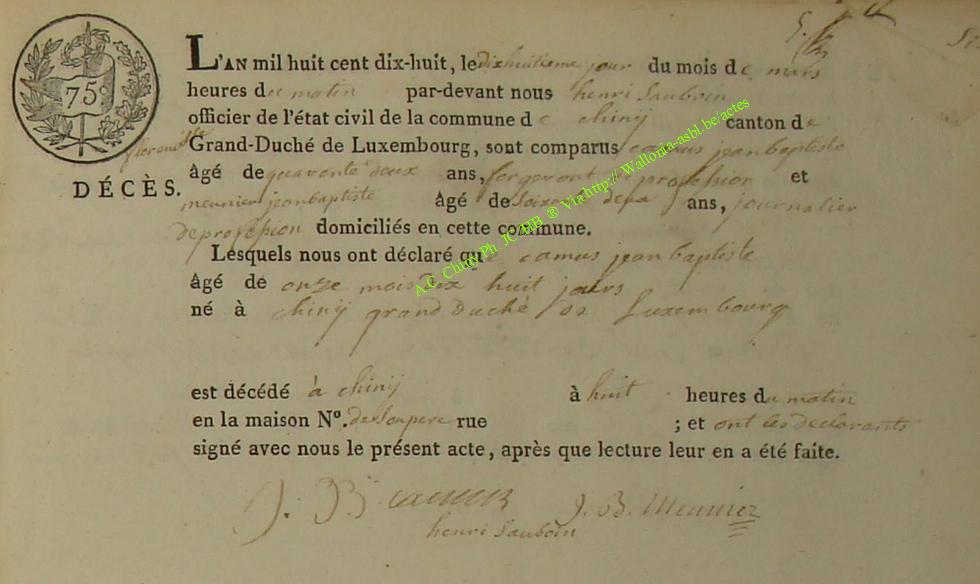 75c
L'AN mil huit cent dix-huit, le dixhuitieme jour du mois de mars
heures du matin par-devant nous henri Sauboin
officier de l'état civil de la commune de chinÿ canton de
florenville Grand-Duché de Luxembourg, sont comparus camus jean baptiste
âgé de quarente deux ans, forgeront de profession et
DÉCÈS.
meunier jean baptiste âgé de soixente deux ans, journalier
de profession domiciliés en cette commune.
Lesquels nous ont déclaré que camus jean baptiste
âgé de onze mois dix huit jours
né à chinÿ grand Duché de Luxembourg
est décédé à chinÿ à huit heures du matin
en la maison N°. de Soupere rue ; et ont les declarants
signé avec nous le présent acte, après que lecture leur en a été faite.
J. B. camus J. B. Meunier
henri Sauboin
A.C. Chiny Ph. JC HB ® Via http:// Wallonia-asbl.be/actes